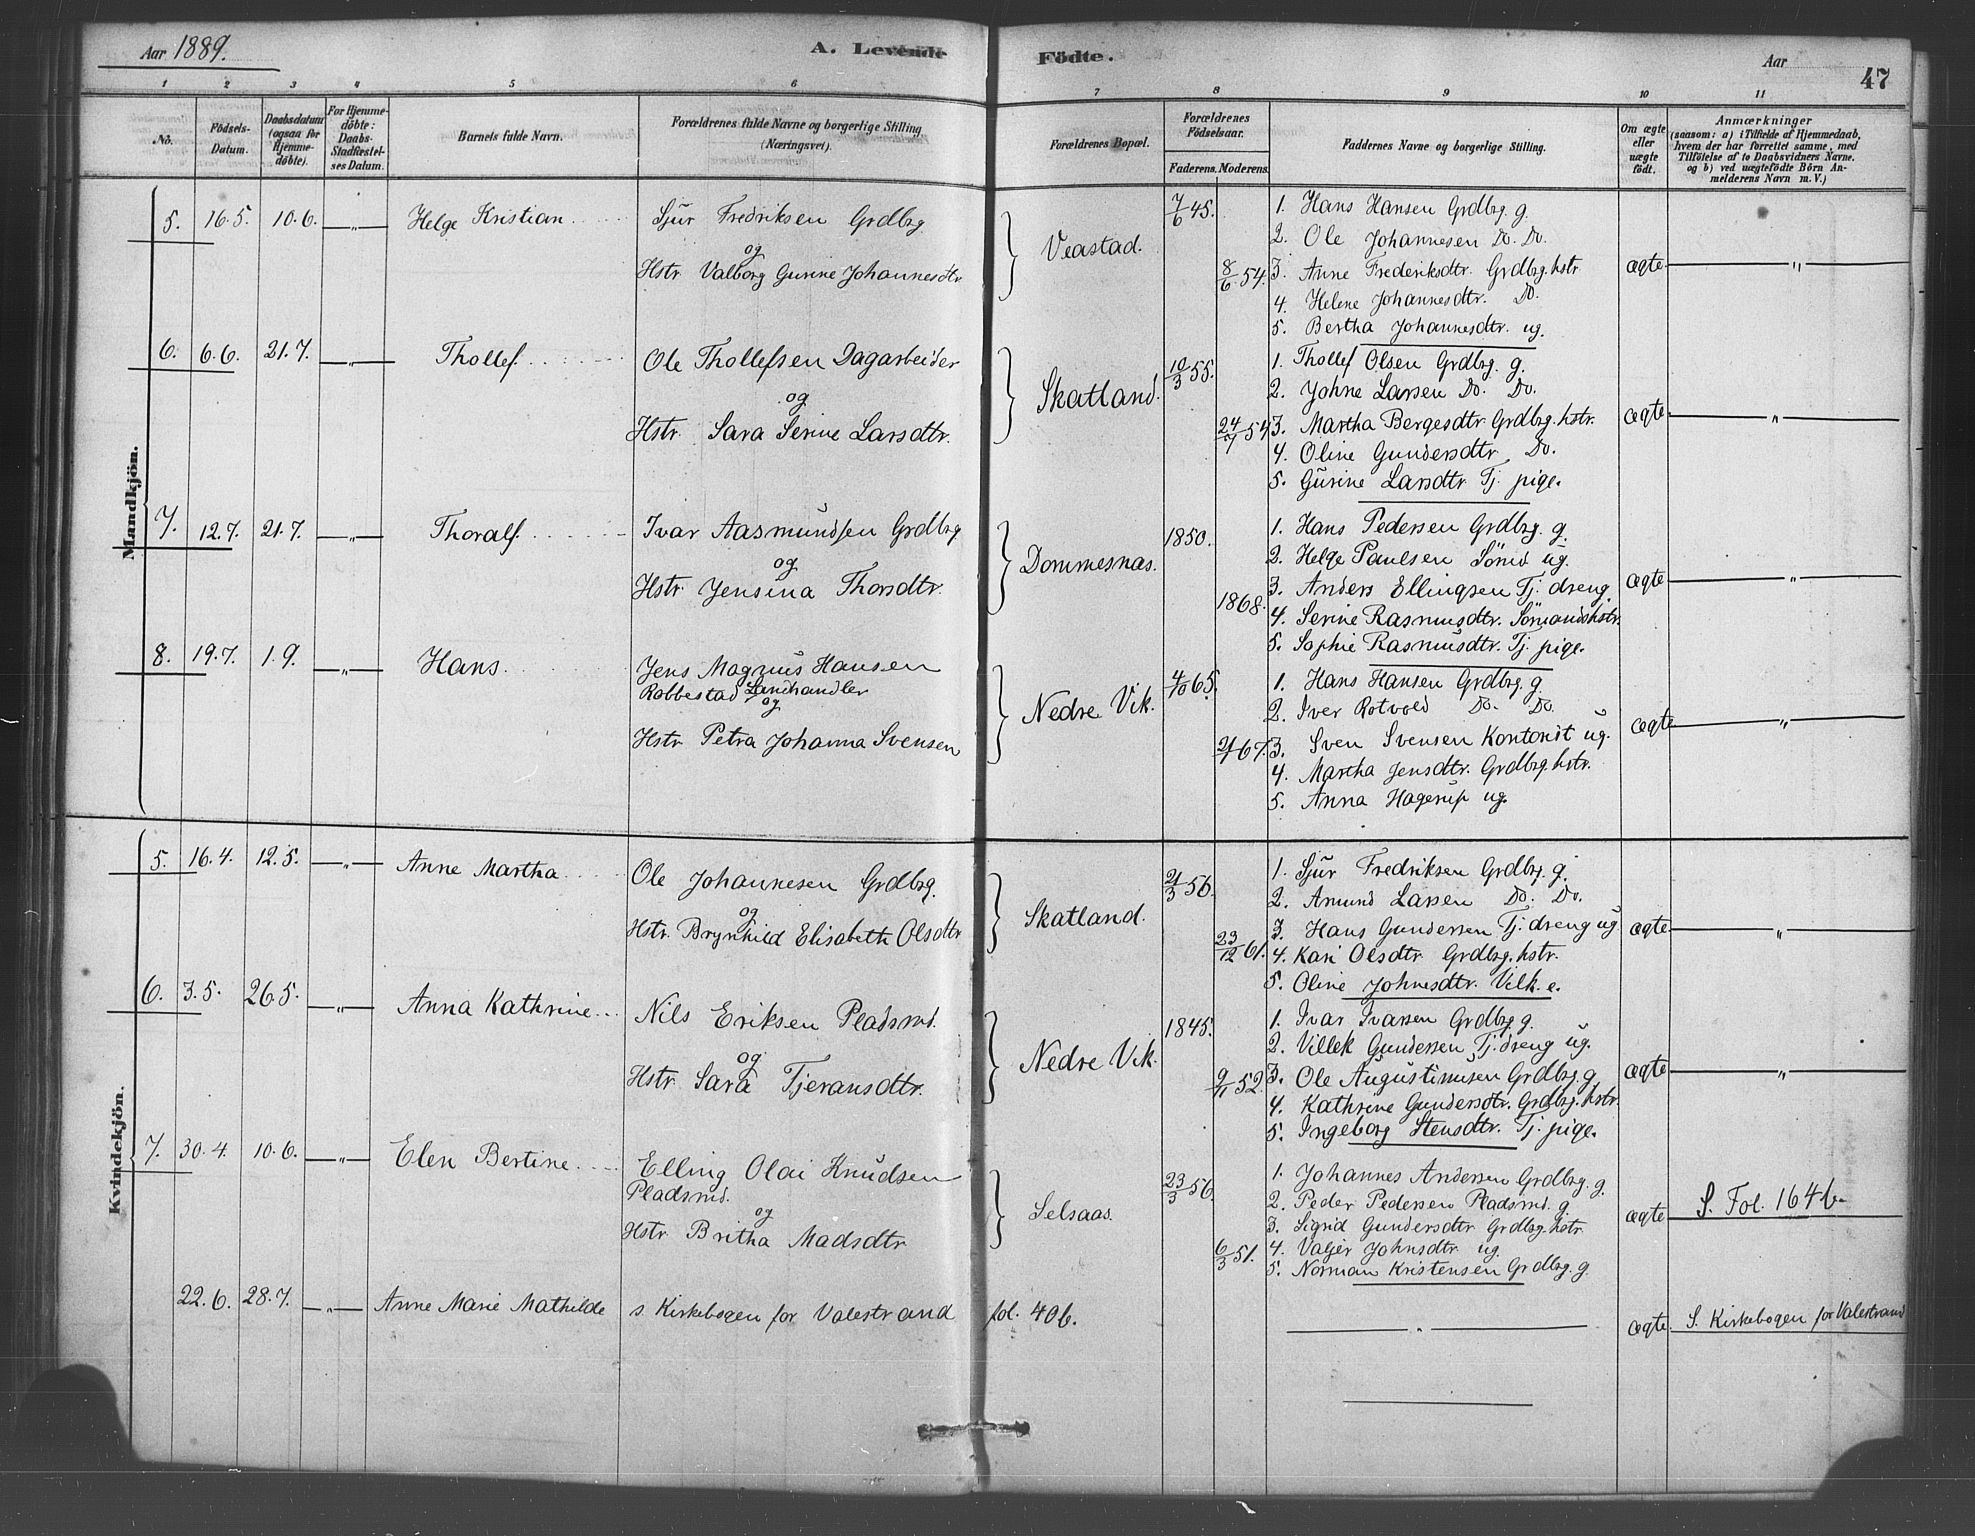 Aar 1889.
A. Levende Födte.
Aar
47
1 2 3 4 5 6 7 8 9 10 11
No.
Födsels-Datum.
Daabsdatum (ogsaa for Hjemmedöbte).
For Hjemmedöbte: Daabs-Stadfæstelses Datum.
Barnets fulde Navn.
Forældrenes fulde Navne og borgerlige Stilling (Næringsvei).
Forældrenes Bopæl.
Forældrenes Födselsaar.
Faderens. Moderens.
Faddernes Navne og borgerlige Stilling.
Om ægte eller uægte födt.
Anmærkninger
(saasom: a) i Tilfælde af Hjemmedaab, hvem der har forrettet samme, med Tilföielse af to Daabsvidners Navne. og b) ved uægtefödte Börn Anmelderens Navn m. V.)
Mandkjön.
5. 16.5. 10.6. —„— Helge Kristian
Sjur Fredriksen Grdbrg
og
Hstr Valborg Gurine Johannesdtr
Veastad.
7/6 45.
8/6 54.
1. Hans Hansen Grdbrg. g.
2. Ole Johannesen Do. Do.
3. Anne Frederiksdtr. Grdbrg.hstr
4. Helene Johannesdtr. Do.
5. Bertha Johannesdtr. ug.
ægte —„—
6. 6.6. 21.7. —„— Thollef
Ole Thollefsen Dagarbeider
og
Hstr. Sara Serine Larsdtr.
Skatland.
10/3 55.
24/7 54
1. Thollef Olsen Grdbrg. g.
2. Johne Larsen Do. Do.
3. Martha Bergesdtr. Grdbrg.hstr.
4. Oline Gundersdtr Do.
5. Gurine Larsdtr Tj. pige.
ægte —„—
7. 12.7. 21.7. —„— Thoralf
Ivar Aasmundsen Grdbrg
og
Hstr. Jensina Thorsdtr.
Dommesnas.
1850.
1868.
1. Hans Pedersen Grdbrg. g.
2. Helge Paulsen Sömd ug.
3. Anders Ellingsen Tj. dreng.
4. Serine Rasmusdtr. Sömandshstr.
5. Sophie Rasmusdtr. Tj. pige.
ægte —„—
8. 19.7. 1.9. —„— Hans
Jens Magnus Hansen
Robbestad Landhandler
og
Hstr. Petra Johanna Svensen
Nedre Vik.
4/10 65.
67.
1. Hans Hansen Grdbrg. g.
2. Iver Rotvold Do. Do.
3. Sven Svensen Kontorist ug.
4. Martha Jensdtr. Grdbrg.hstr.
5. Anna Hagerup ug.
ægte —„—
Kvindekjön.
5. 16.4. 12.5. —„— Anne Martha
Ole Johannesen Grdbrg.
og
Hstr. Brynhild Elisabeth Olsdtr
Skatland.
2/3 56.
23/12 61.
1. Sjur Fredriksen Grdbrg. g.
2. Amund Larsen Do. Do.
3. Hans Gundersen Tj. dreng ug
4. Kari Olsdtr Grdbrg. hstr.
5. Oline Johnesdtr. Vilk. e.
ægte —„—
6. 3.5. 26.5. —„— Anna Kathrine
Nils Eriksen Pladsmd.
og
Hstr Sara Tjeransdtr.
Nedre Vik.
1845.
9/11 52.
1. Ivar Ivarsen Grdbrg g.
2. Villek Gundersen Tj. dreng ug.
3. Ole Augustinusen Grdbrg. g
4. Kathrine Gundersdtr. Grdbrg. hstr.
5. Ingeborg Stensdtr. Tj. pige.
ægte —„—
7. 30.4. 10.6. —„— Elen Bertine
Elling Olai Knudsen
Pladsmd.
og
Hstr Britha Madsdtr
Selsaas.
23/3 56
6/3 51.
1. Johannes Andersen Grdbrg. g.
2. Peder Pedersen Pladsmd. g.
3. Sigrid Gundersdtr Grdbrg. hstr
4. Valger Johnsdtr ug.
5. Norman Kristensen Grdbrg. g.
ægte S. Fol. 164 b.
22.6. 28.7. —„— Anne Marie Mathilde s. Kirkebogen for Valestrand fol. 40b. —„— ægte S. Kirkebogen for Valestrand